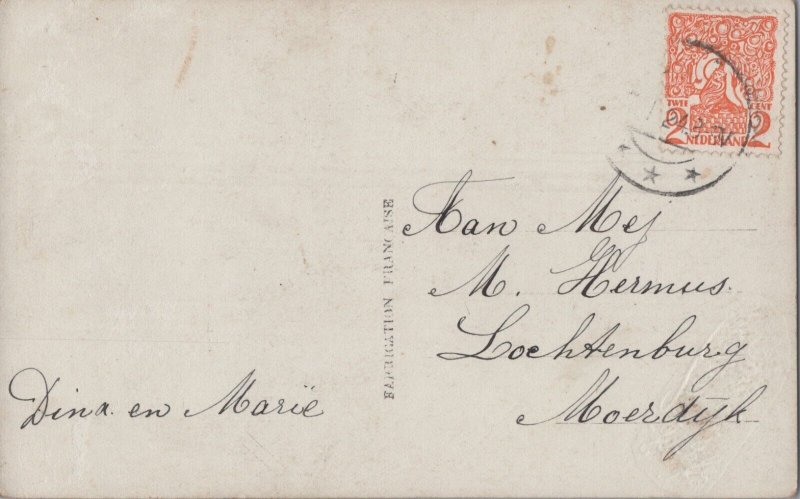 TWEE CENT
2 NEDERLAND 2
Aan Mej
M. Hermus.
Lochtenburg
Moerdijk
FABRICATION FRANÇAISE
Dina en Marië